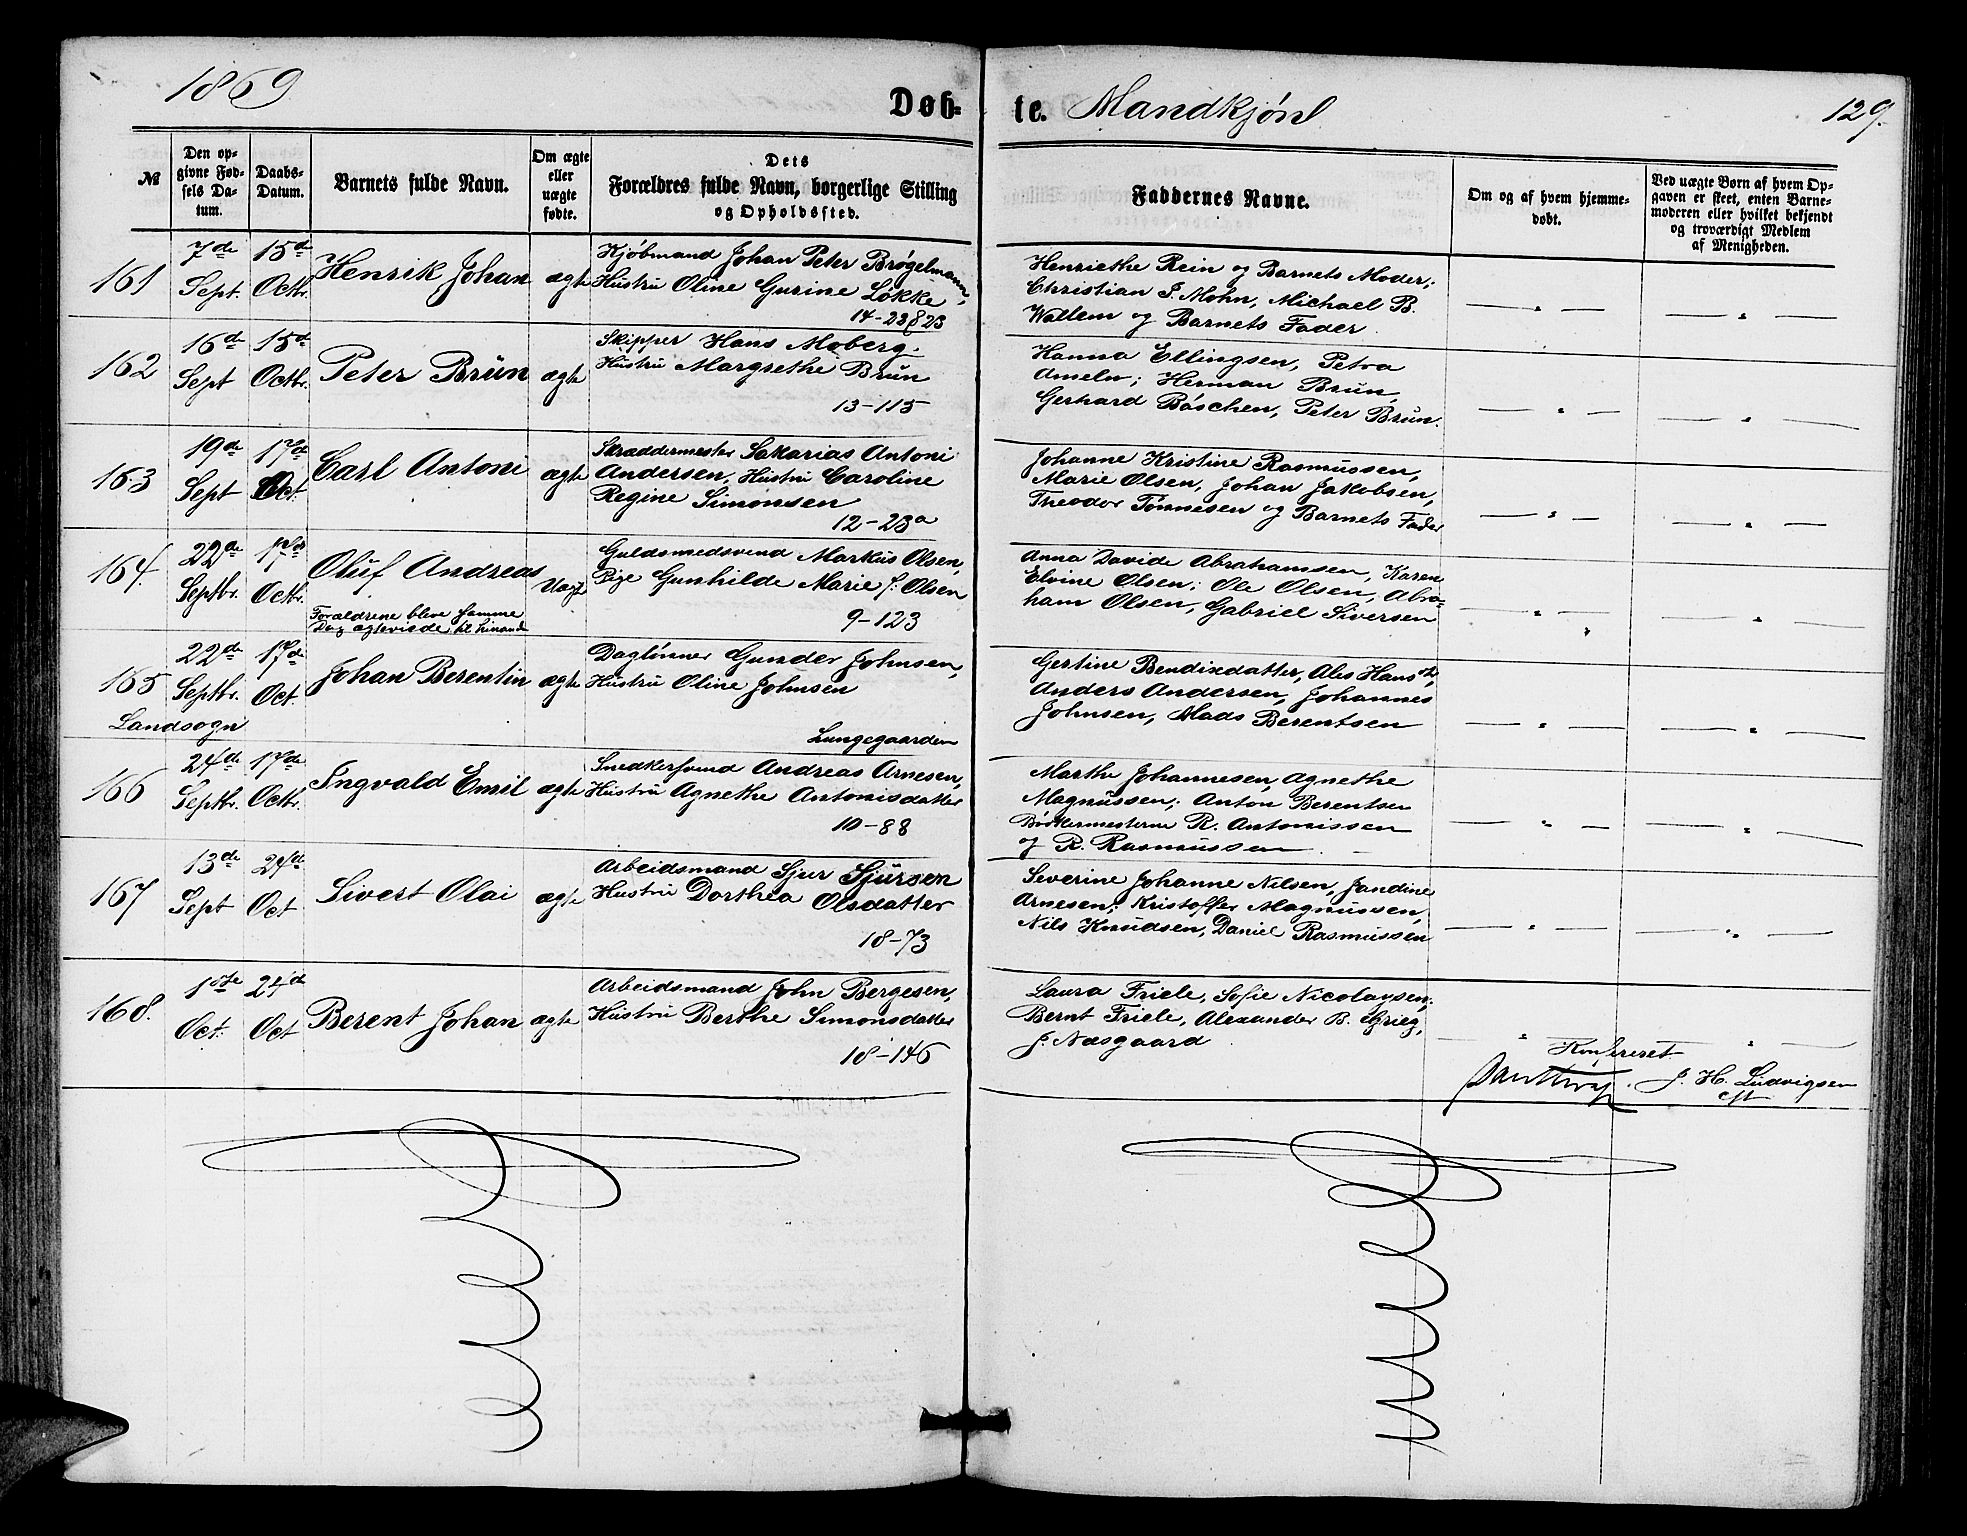 1869
Døb-
te. Mandkjøn
129.
№
Den op-
givne Fød-
sels Da-
tum.
Daabs-
Datum.
Barnets fulde Navn.
Om ægte
eller
uægte
fødte.
Dets
Forældres fulde Navn, borgerlige Stilling
og Opholdssted.
Faddernes Navne.
Om og af hvem hjemme-
døbt.
Ved uægte Børn af hvem Op-
gaven er skeet, enten Barne-
moderen eller hvilket bekjendt
og troværdigt Medlem
af Menigheden.
161
7de
Sept.
15de
Octbr.
Henrik Johan
ægte
Kjøbmand Johan Peter Brøgelmann,
Hustru Oline Gurine Løkke
14-22 & 23
Henriethe Rein og Barnets Moder;
Christian J. Mohn, Michael B.
Wallem og Barnets Fader.
162
16de
Sept
15de
Octbr.
Peter Brün
ægte
Skipper Hans Moberg.
Hustru Margrethe Brün
13-115
Hanna Ellingsen, Petra
Ameln; Herman Brün,
Gerhard Böschen, Peter Brün.
163
19de
Sept
17de
Oct.
Carl Antoni
ægte
Skræddermester Sakarias Antoni
Andersen, Hustru Caroline
Regine Simonsen
12-23a
Johanne Kristine Rasmussen,
Marie Olsen, Johan Jakobsen,
Theodor Tønnesen og Barnets Fader
164.
22de
Septbr.
17de
Octbr.
Oluf Andreas
Forældrene bleve samme
Dag ægteviede til hinanden
Uægte
Guldsmedsvend Markus Olsen,
Pige Gunhilde Marie f. Olsen
9-123
Anna Davide Abrahamsen, Karen
Elvine Olsen; Ole Olsen, Abra-
ham Olsen, Gabriel Siversen
165
Landsogn
22de
Septbr.
17de
Oct.
Johan Berentin
ægte
Dagtønner Gunder Johnsen,
Hustru Oline Johnsen
Lungegaarden
Gertine Bendixdatter, Ales Hansdtr,
Anders Andersen, Johannes
Johnsen, Mads Berentsen
166
24de
Septbr.
17de
Octbr.
Ingvald Emil
ægte
Snedkersvend Andreas Arnesen,
Hustru Agnethe Antonisdatter
10-88
Marthe Johannesen, Agnethe
Magnussen; Anton Berentsen
Bødkermesterne R. Antonissen
og R. Rasmussen
167
13de
Sept
24de
Oct
Sivert Olai
ægte
Arbeidsmand Sjur Sjursen
Hustru Dorthea Olsdatter
18-73
Severine Johanne Nilsen, Jandine
Arnesen; Kristoffer Magnussen,
Nils Knudsen, Daniel Rasmussen
168.
1ste
Oct.
24de
Oct
Berent Johan
ægte
Arbeidsmand John Bergesen,
Hustru Berthe Simonsdatter
18-146
Laura Friele, Sofie Nicolaysen;
Bernt Friele, Alexander B. Grieg,
J. Næsgaard
Konfereret
J. H. Ludvigsen
cst